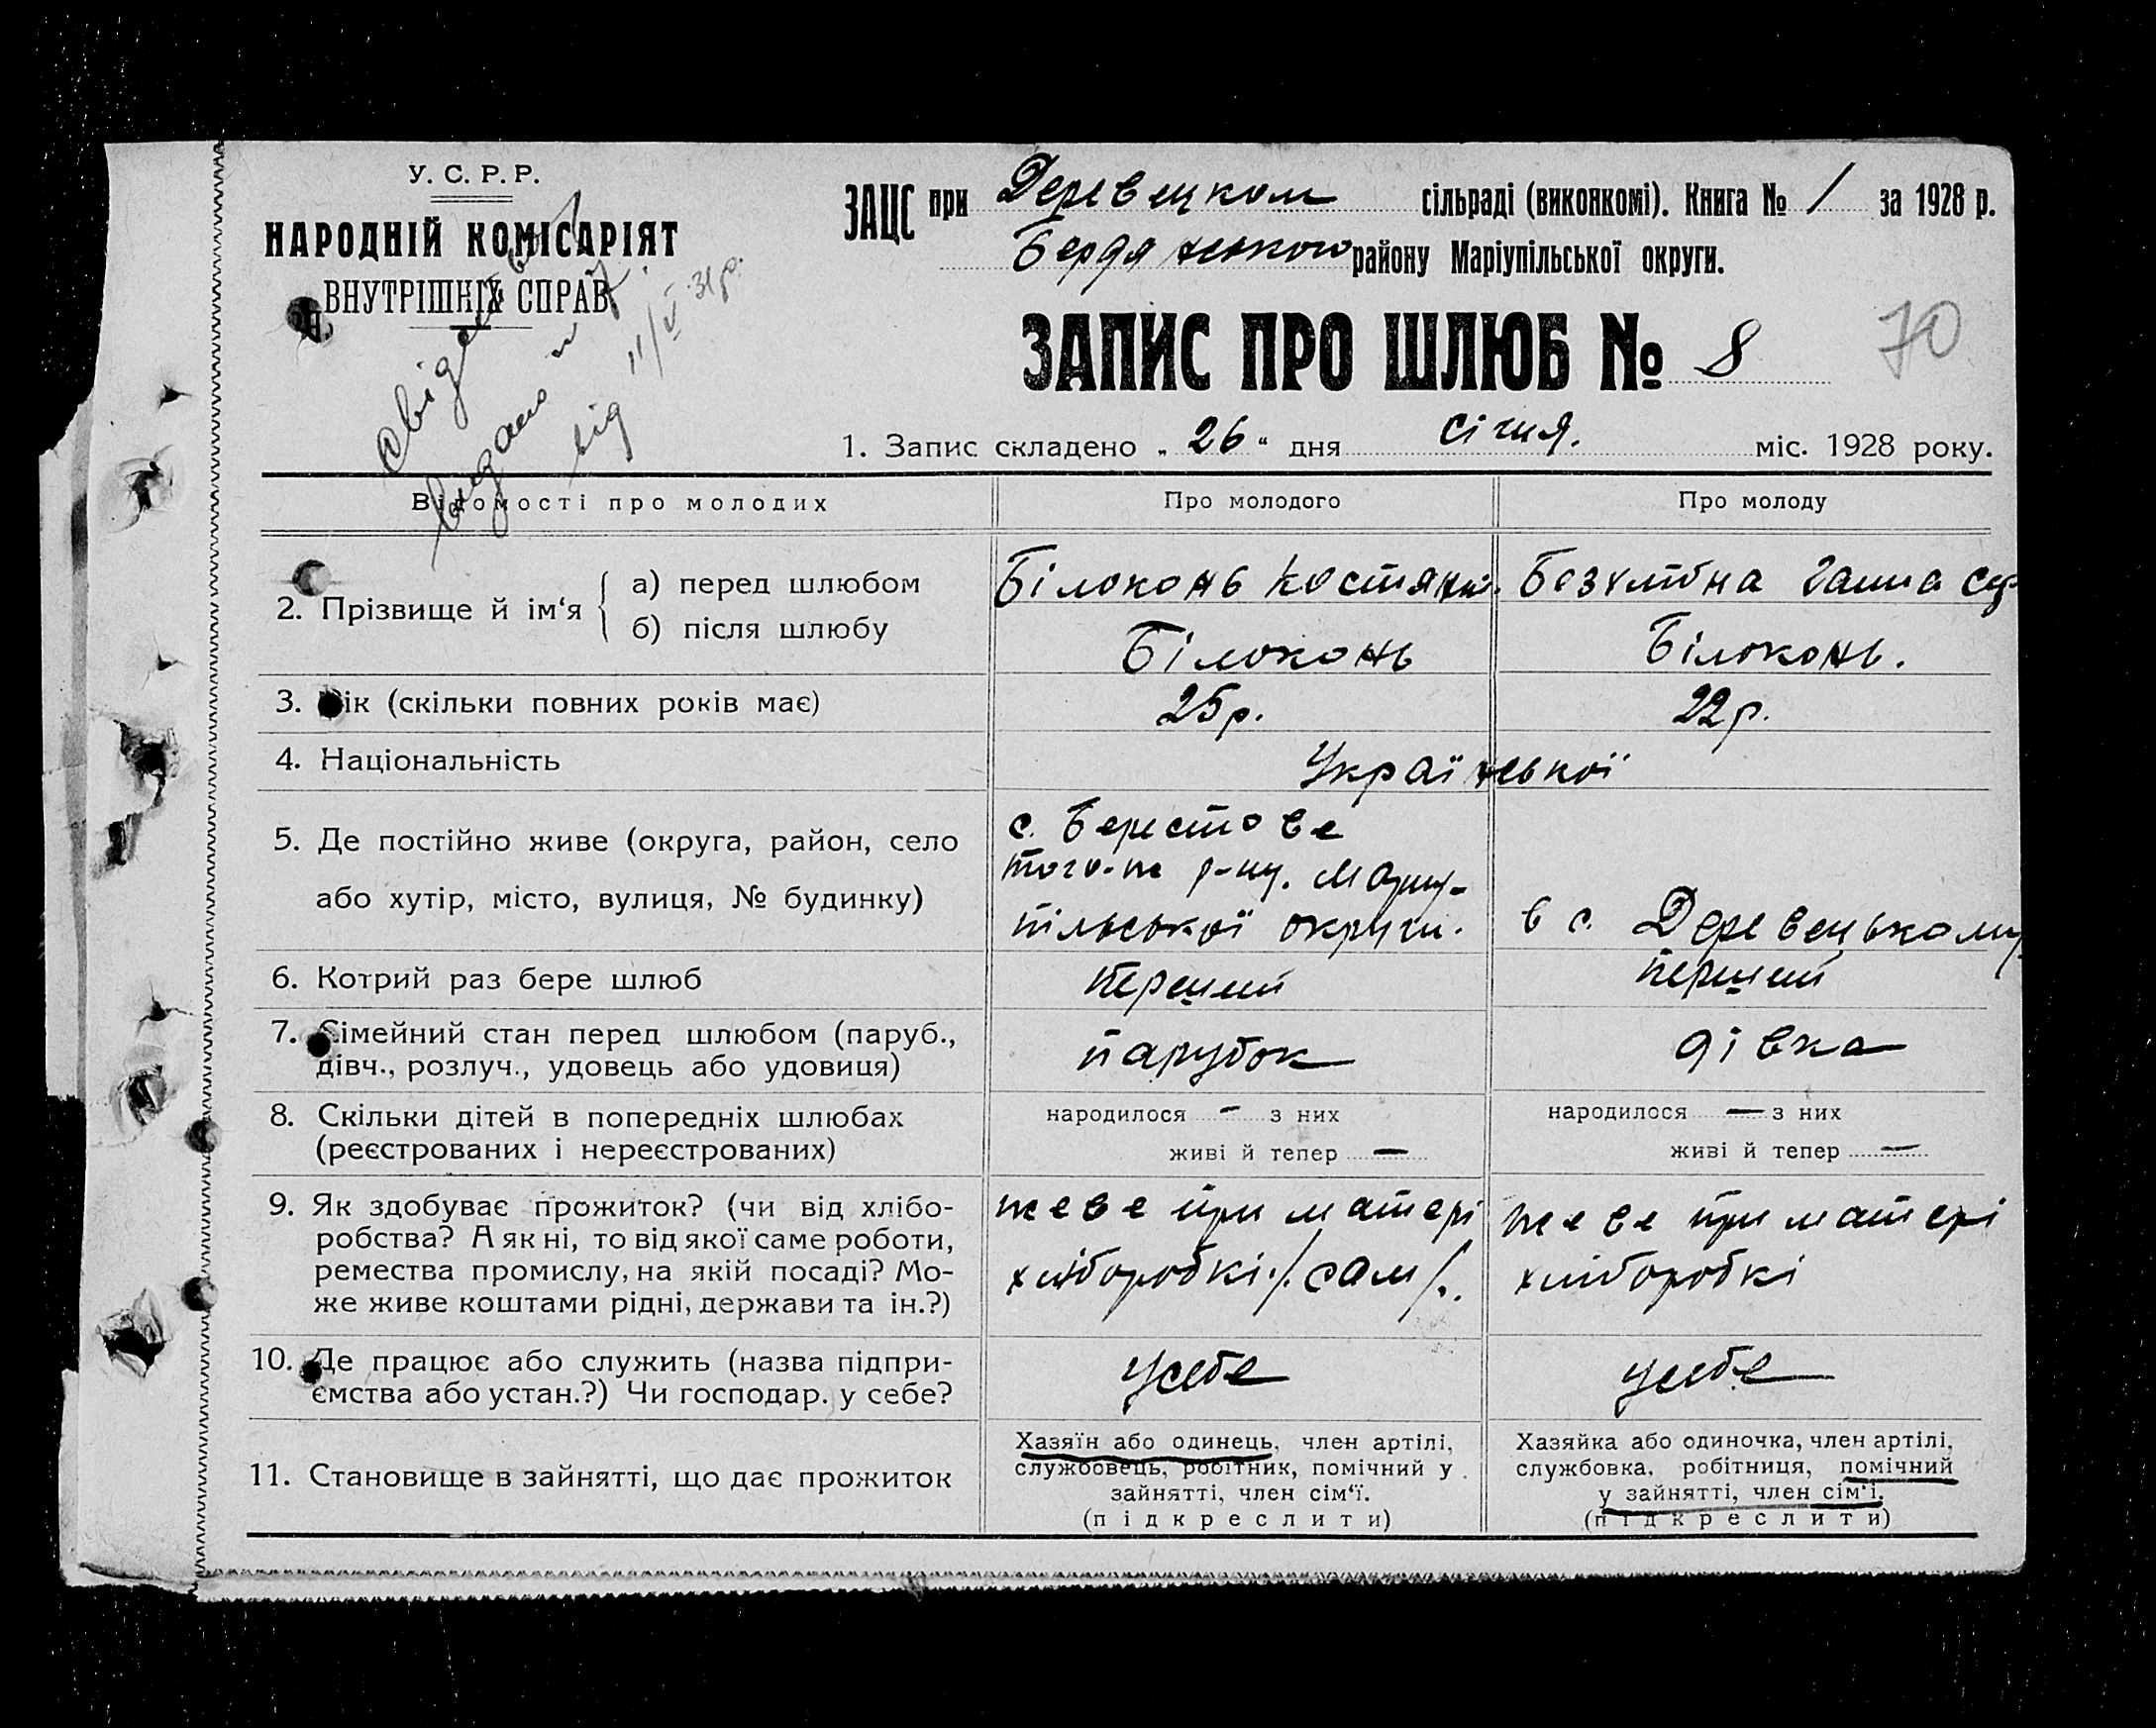 У. С. Р. Р.
НАРОДНІЙ КОМІСАРІЯТ
ВНУТРІШНІХ СПРАВ
від 11/V 31р.
ЗАЦС при Деревецком сільраді (виконкомі). Книга № 1 за 1928 р.
Бердянського району Маріупільської округи.
ЗАПИС ПРО ШЛЮБ № 8
70
1. Запис складено „ 26 “ дня січня. міс. 1928 року.
Відомості про молодих
Про молодого
Про молоду
2. Прізвище й ім‘я
а) перед шлюбом
Білоконь Костянт.
Ганна
б) після шлюбу
Білоконь
Білоконь.
3. Вік (скільки повних років має)
25р.
22р.
4. Національність
Української
5. Де постійно живе (округа, район, село
або хутір, місто, вулиця, № будинку)
с. Берестове
того-ж р-ну. Маріу-
пільської округи.
в с. Деревецькому
6. Котрий раз бере шлюб
перший
перший
7. Сімейний стан перед шлюбом (паруб.,
дівч., розлуч., удовець або удовиця)
парубок
дівка
8. Скільки дітей в попередніх шлюбах
(реєстрованих і нереєстрованих)
народилося — з них
живі й тепер —
народилося — з них
живі й тепер —
9. Як здобуває прожиток? (чи від хлібо-
робства? А як ні, то від якої саме роботи,
ремества промислу, на якій посаді? Мо-
же живе коштами рідні, держави та ін.?)
жеве при матері
хліборобкі ./. сам /..
жеве при матері
хліборобкі
10. Де працює або служить (назва підпри-
ємства або устан.?) Чи господар. у себе?
усебе
усебе
11. Становище в зайнятті, що дає прожиток
Хазяїн або одинець, член артілі,
службовець, робітник, помічний у
зайнятті, член сім‘ї.
(підкреслити)
Хазяйка або одиночка, член артілі,
службовка, робітниця, помічний
у зайнятті, член сім‘ї.
(підкреслити)